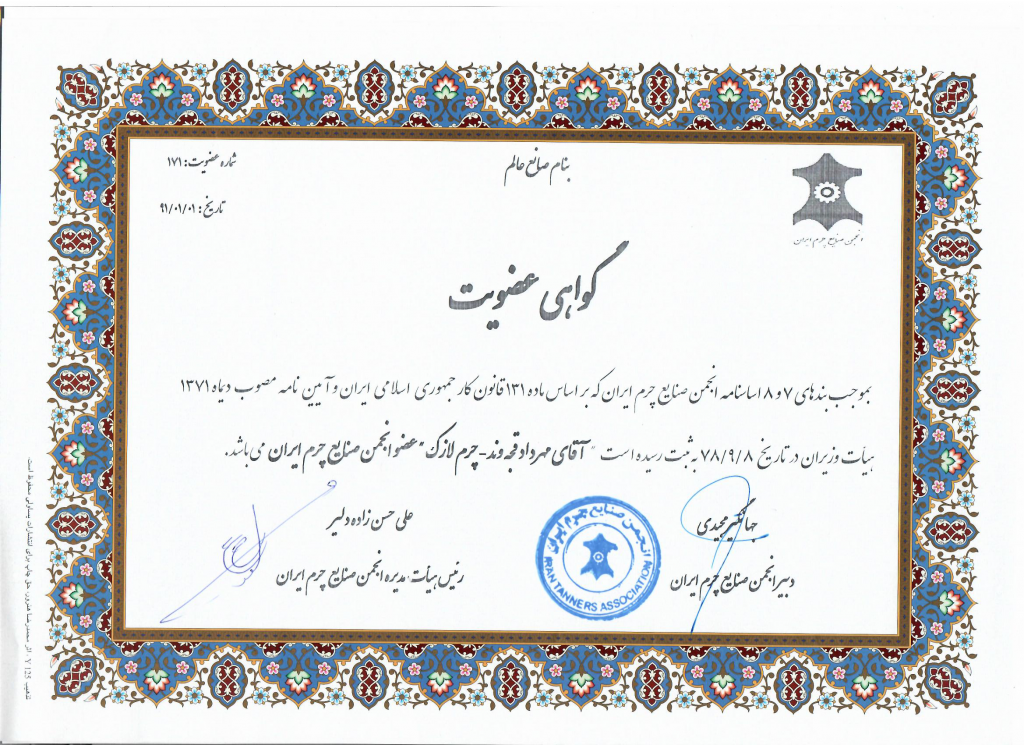 بنام صانع عالم
شماره عضویت: ۱۷۱
تاریخ: ۹۱/۰۱/۰۱
انجمن صنایع چرم ایران
گواهی عضویت
بموجب بندهای ۷ و ۸ اساسنامه انجمن صنایع چرم ایران که بر اساس ماده ۱۳۱ قانون کار جمهوری اسلامی ایران و آیین نامه مصوب دیماه ۱۳۷۱
هیأت وزیران در تاریخ ۷۸/۹/۸ به ثبت رسیده است " آقای مهرداد قجه وند - چرم لازک " عضو انجمن صنایع چرم ایران می باشد.
جهانگیر مجیدی
دبیر انجمن صنایع چرم ایران
علی حسن زاده دلیر
رئیس هیأت مدیره انجمن صنایع چرم ایران
انجمن صنایع چرم ایران
IRAN TANNERS ASSOCIATION
حق چاپ برای انتشارات یساولی محفوظ است